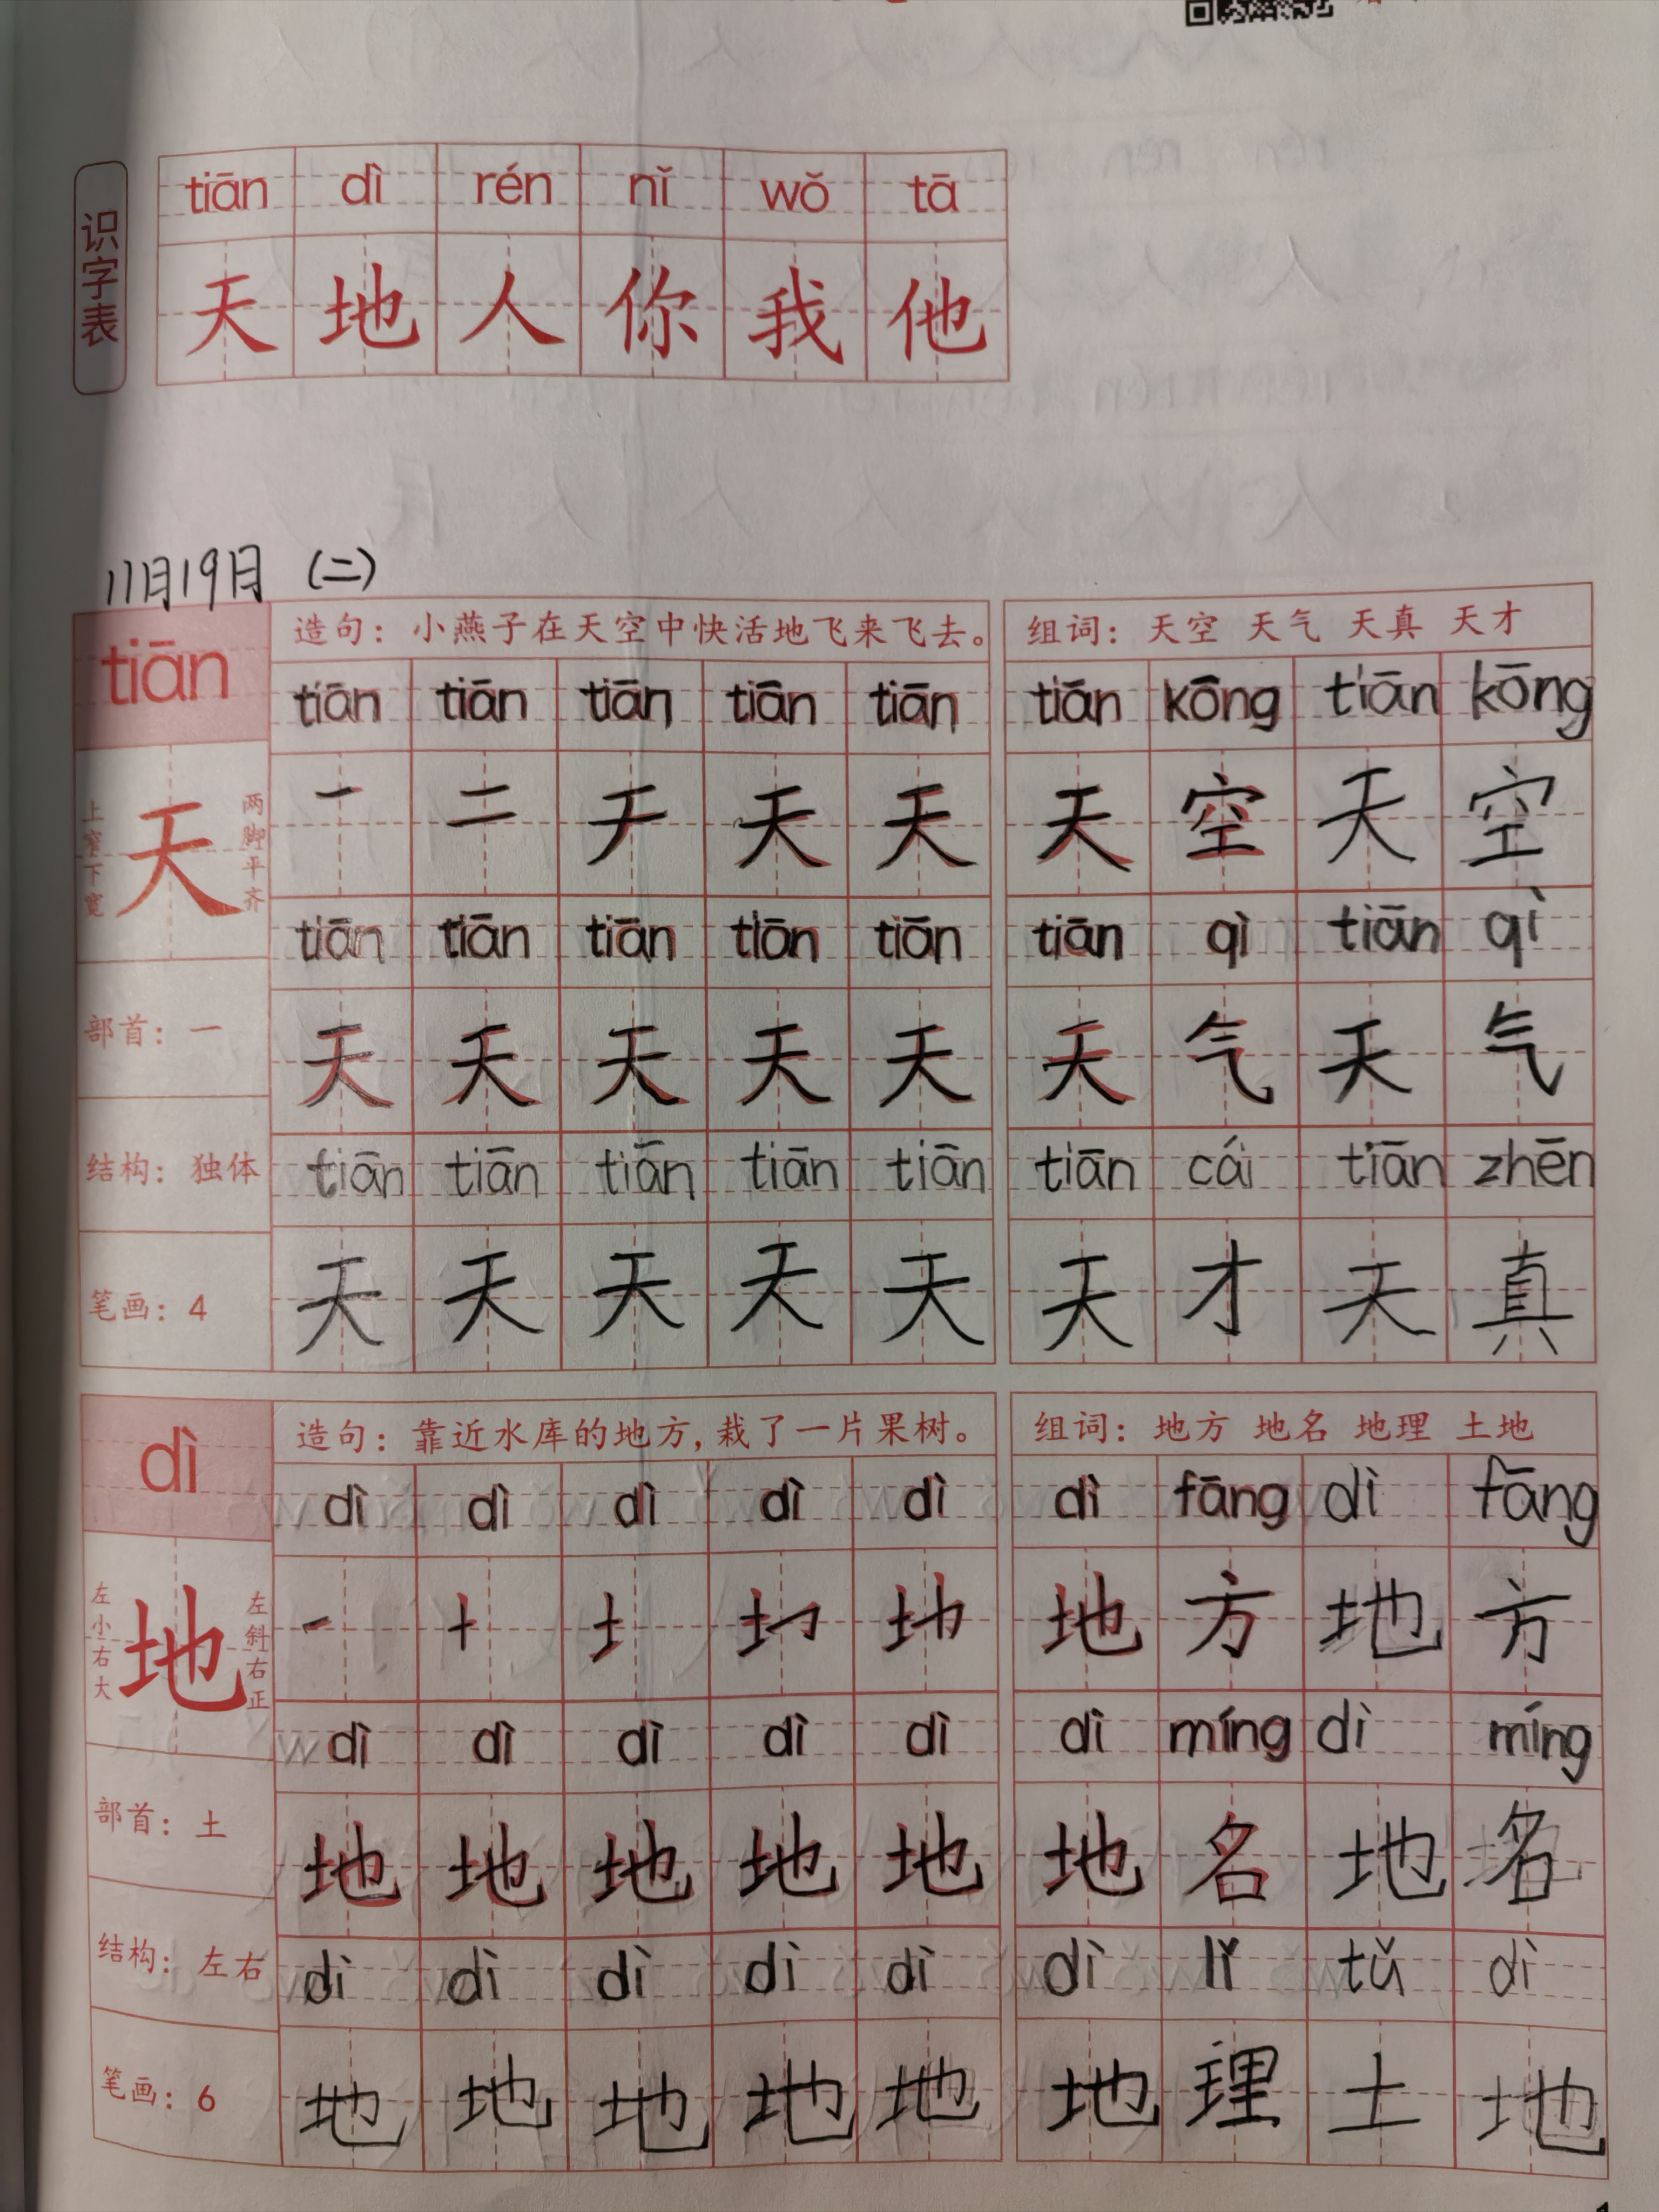 识字表
tiān dì rén nǐ wǒ tā
天 地 人 你 我 他
11月19日 (二)
tiān
造句：小燕子在天空中快活地飞来飞去。
组词：天空 天气 天真 天才
tiān tiān tiān tiān tiān tiān kōng tiān kōng
天
上窄下宽
两脚平齐
一 二 于 天 天 天 空 天 空
tiān tiān tiān tiān tiān tiān qì tiān qì
部首：一
天 天 天 天 天 天 气 天 气
结构：独体
tiān tiān tiān tiān tiān tiān cái tiān zhēn
笔画：4
天 天 天 天 天 天 才 天 真
dì
造句：靠近水库的地方，栽了一片果树。
组词：地方 地名 地理 土地
dì dì dì dì dì dì fāng dì fāng
地
左小右大
左斜右正
地 方 地 方
dì dì dì dì dì dì míng dì míng
部首：土
地 地 地 地 地 地 名 地 名
结构：左右
dì dì dì dì dì dì lǐ tǔ dì
笔画：6
地 地 地 地 地 地 理 土 地